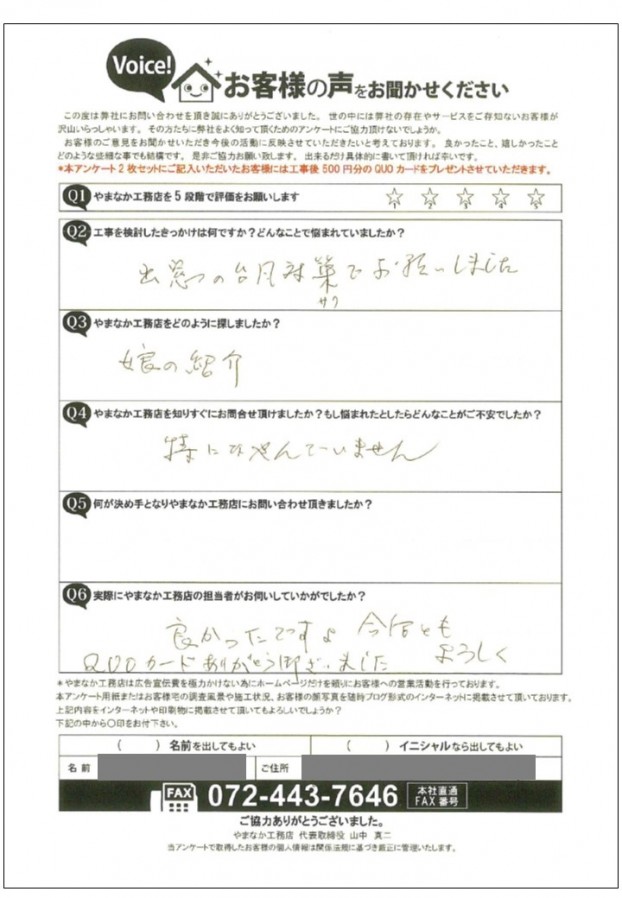 Voice!
お客様の声をお聞かせください
この度は弊社にお問い合わせを頂き誠にありがとうございました。世の中には弊社の存在やサービスをご存知ないお客様が
沢山いらっしゃいます。その方たちに弊社をよく知って頂くためのアンケートにご協力頂けないでしょうか。
お客様のご意見をお聞かせいただき今後の活動に反映させていただきたいと考えております。良かったこと、嬉しかったこと
どのような些細な事でも結構です。是非ご協力お願い致します。出来るだけ具体的に書いて頂ければ幸いです。
*本アンケート2枚セットにご記入いただいたお客様には工事後500円分のQUOカードをプレゼントさせていただきます。
Q1 やまなか工務店を5段階で評価をお願いします
1 2 3 4 5
Q2 工事を検討したきっかけは何ですか?どんなことで悩まれていましたか?
出窓の台风対策でお願いしました
サク
Q3 やまなか工務店をどのように探しましたか?
娘の紹介
Q4 やまなか工務店を知りすぐにお問合せ頂けましたか?もし悩まれたとしたらどんなことがご不安でしたか?
特になやんでいません
Q5 何が決め手となりやまなか工務店にお問い合わせ頂きましたか?
Q6 実際にやまなか工務店の担当者がお伺いしていかがでしたか?
良かったですよ 今后とも
よろしく
QUOカードありがとう御ざいました
*やまなか工務店は広告宣伝費を極力かけない為にホームページだけを頼りにお客様への営業活動を行っております。
本アンケート用紙またはお客様宅の調査風景や施工状況、お客様の顔写真を随時ブログ形式のインターネットに掲載させて頂いております。
上記内容をインターネットや印刷物に掲載させて頂いてもよろしいでしょうか?
下記の中から〇印をお付下さい。
( ) 名前を出してもよい ( ) イニシャルなら出してもよい
名前 ご住所
FAX 072-443-7646 本社直通
FAX番号
ご協力ありがとうございました。
やまなか工務店 代表取締役 山中 真二
当アンケートで取得したお客様の個人情報は関係法規に基づき厳正に管理いたします。